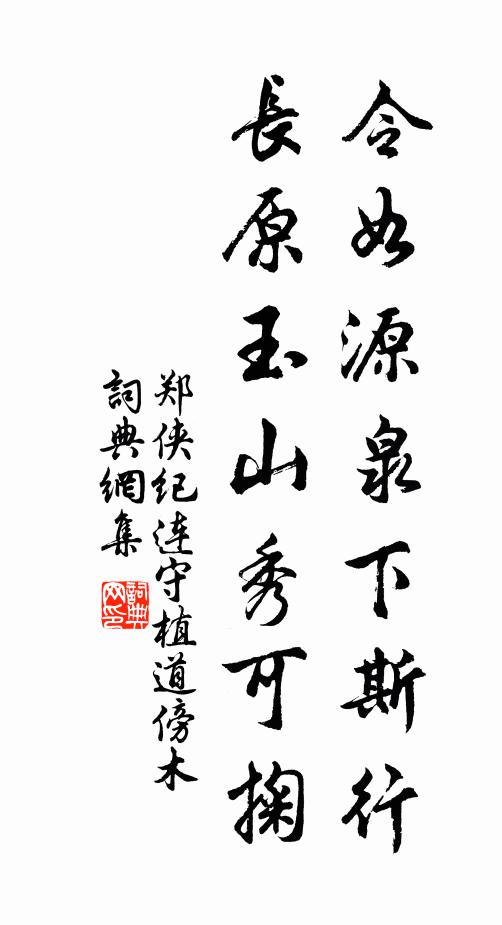 令如源泉下斯行
長原玉山秀可掬
郑侠纪连守植道傍木
詞典網集
詞典网印